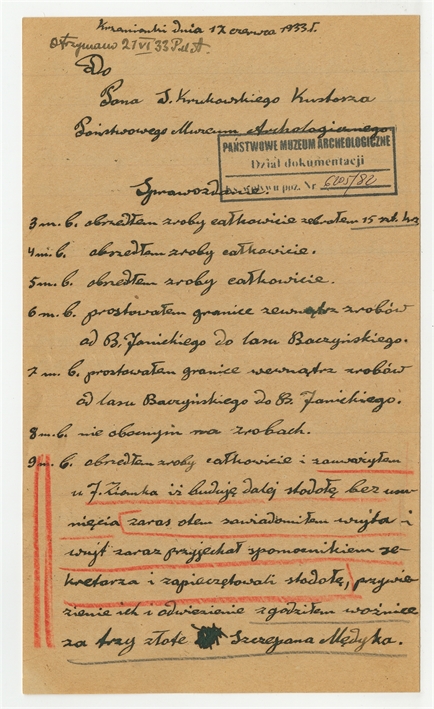 Krzemionki dnia 12 czerwca 1933 r.
Otrzymano 21 VI 33
Do
Pana S. Krukowskiego Kustosza
Państwowego Muzeum Archologicznego
PAŃSTWOWE MUZEUM ARCHEOLOGICZNE
Dział dokumentacji
ppz. Nr.
Sprawozdanie
3 m. b. obszedłem zroby całkowicie zebrałem 15
4 m. b. obszedłem zroby całkowicie.
5 m. b. obszedłem zroby całkowicie.
6 m. b. prostowałem granice zewnątrz zrobów
od B. Janickiego do lasu Baczyńskiego.
7 m. b. prostowałem granice wewnątrz zrobów
od lasu Baczyńskiego do B. Janickiego.
8 m. b. nie obecnym na zrobach.
9 m. b. obszedłem zroby całkowicie i zauważyłem
u J. Ziomka iż buduję dalej stodołę bez usu-
nięcia zaras otem zawiadomiłem wujta i
wujt zaraz przyjechał spomocnikiem se-
kretarza i zapieczętowali stodołę, przywie-
zienie ich i odwiezienie zgodziłem woźnice
za trzy złote Szczepana Mędyka.